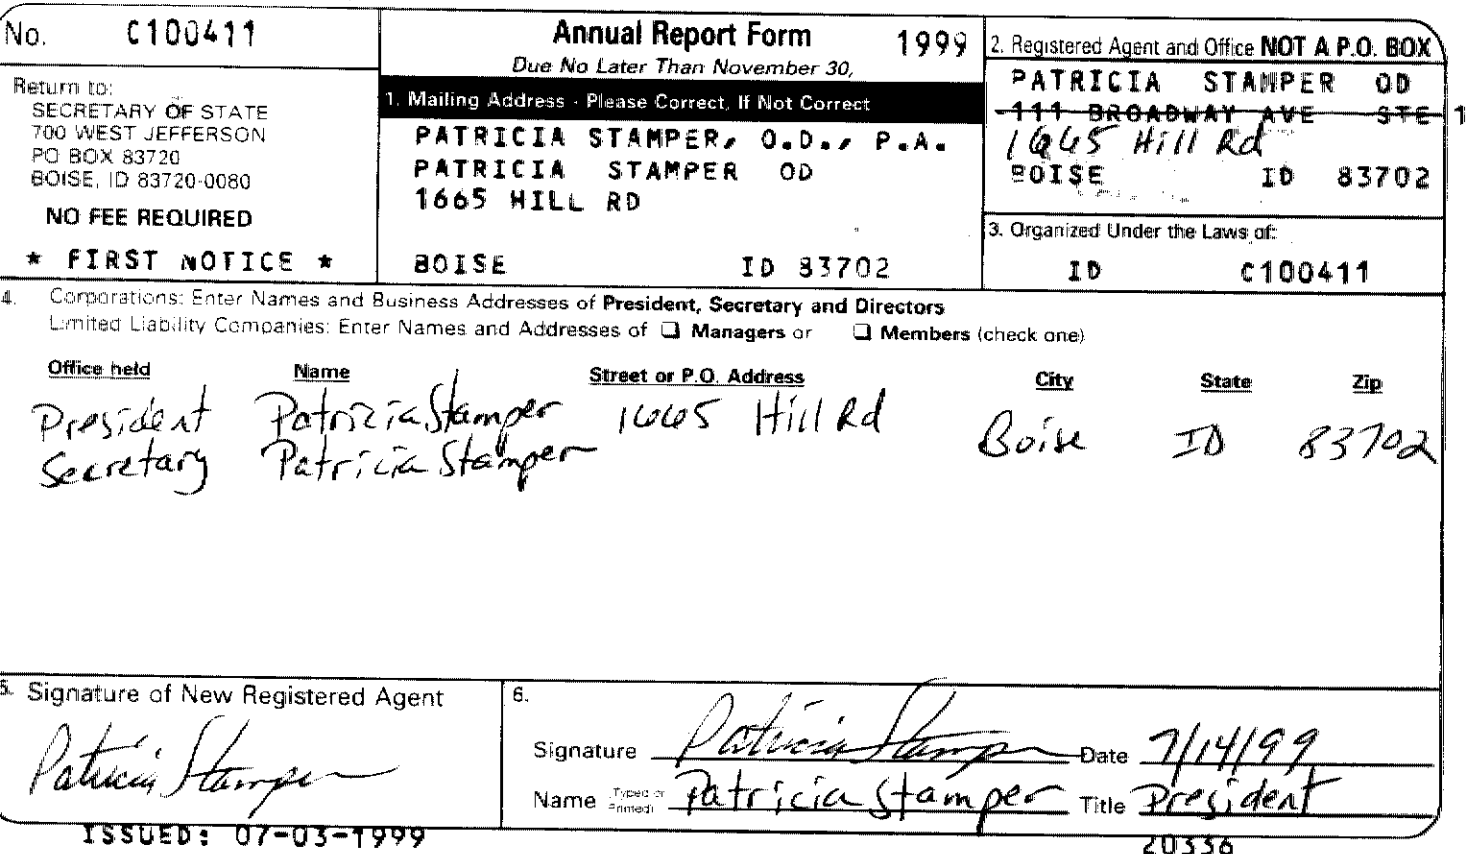 No. C100411
Return to:
SECRETARY OF STATE
700 WEST JEFFERSON
PO BOX 83720
BOISE, ID 83720-0080
NO FEE REQUIRED
* FIRST NOTICE *
Annual Report Form 1999
Due No Later Than November 30,
1. Mailing Address - Please Correct, If Not Correct
PATRICIA STAMPER, O.D., P.A.
PATRICIA STAMPER OD
1665 HILL RD
BOISE ID 83702
2. Registered Agent and Office NOT A P.O. BOX
PATRICIA STAMPER OD
111 BROADWAY AVE STE 1
1665 Hill Rd
BOISE ID 83702
3. Organized Under the Laws of:
ID C100411
4. Corporations: Enter Names and Business Addresses of President, Secretary and Directors
Limited Liability Companies: Enter Names and Addresses of ❏ Managers or ❏ Members (check one)
Office held Name Street or P.O. Address City State Zip
President Patricia Stamper 1665 Hill Rd Boise ID 83702
Secretary Patricia Stamper
5. Signature of New Registered Agent
Patricia Stamper
6.
Signature Patricia Stamper Date 7/14/99
Name (Typed or Printed) Patricia Stamper Title President
ISSUED: 07-03-1999
20336